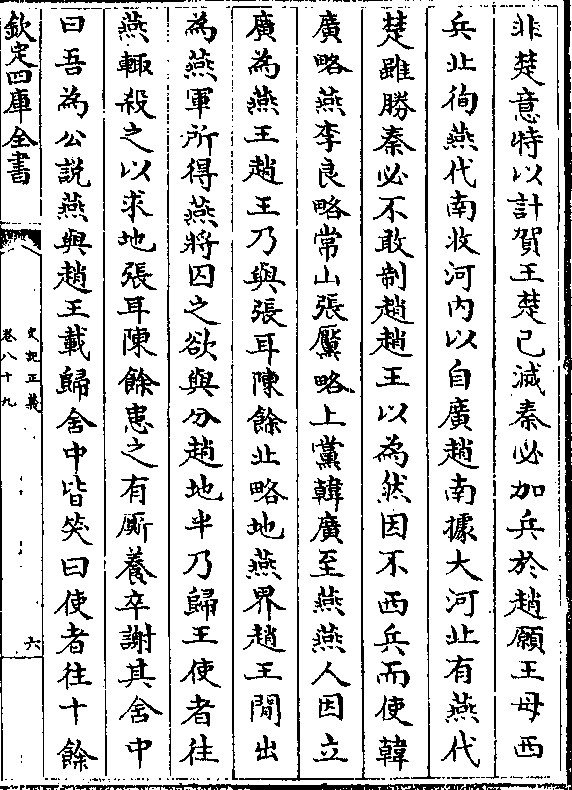 非楚意特以計賀王楚已滅秦必加兵於趙願王毋西
兵北徇燕代南收河内以自廣趙南據大河北有燕代
楚雖勝秦必不敢制趙趙王以為然因不西兵而使韓
廣略燕李良略常山張黶略上黨韓廣至燕燕人因立
廣為燕王趙王乃與張耳陳餘北略地燕界趙王間出
為燕軍所得燕將囚之欲與分趙地半乃歸王使者往
燕輒殺之以求地張耳陳餘患之有厮養卒謝其舍中
曰吾為公說燕與趙王載歸舍中皆笑曰使者往十餘
欽定四庫全書
史記正義
卷八十九
六